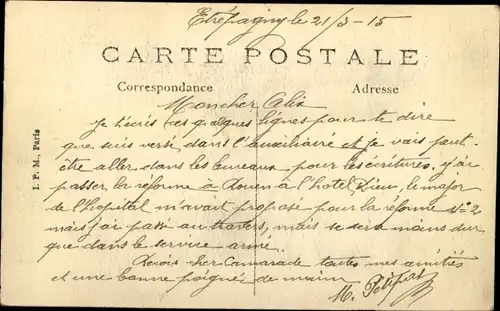 Etrépagny le 21/3-15
CARTE POSTALE
Correspondance Adresse
Mon cher Alix
Je t'écris ces quelques lignes pour te dire
que suis versé dans l'auxiliaire et je vais peut-
être aller dans les bureaux pour les écritures. j'ai
passer la réforme à Rouen à l'hotel Dieu, le major
de l'hopital m'avait proposé pour la réforme No 2
mais j'ai passé au travers, mais se sera moins dur
que dans le service armé.
Recois cher Camarade toutes mes amitiés
et une bonne poignée de main
M.
I. P. M., Paris